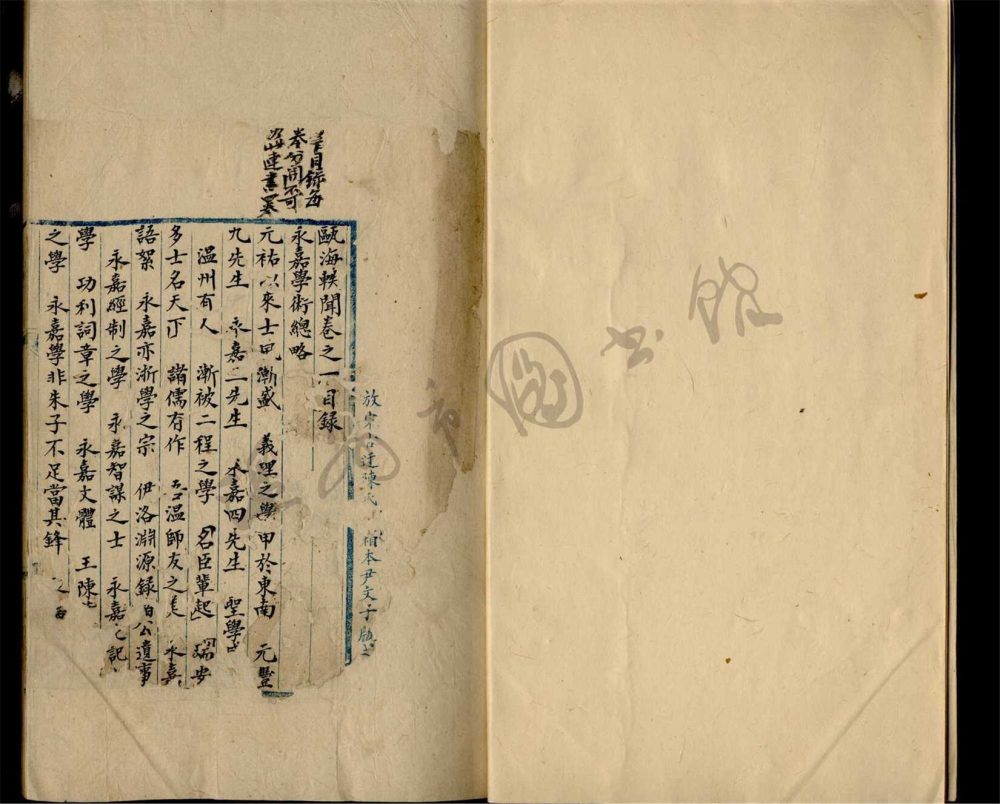 書目錄每
卷分開不可
連書寫
甌海軼聞卷之一目錄
永嘉學術總略
元祐以來士甲漸盛　義理之學甲於東南　元豐
九先生　永嘉二先生　永嘉四先生　聖學
温州有人　漸被二程之學　名臣輩起　瑞安
多士名天下　諸儒有作　吾温師友之　永嘉
語絮　永嘉亦浙學之宗　伊洛淵源錄　公遺事
永嘉經制之學　永嘉智謀之士　永嘉　記
學　功利詞章之學　永嘉文體　王陳
之學　永嘉學非朱子不足當其鋒
放宋　陳氏　本尹文子版
市圖書館